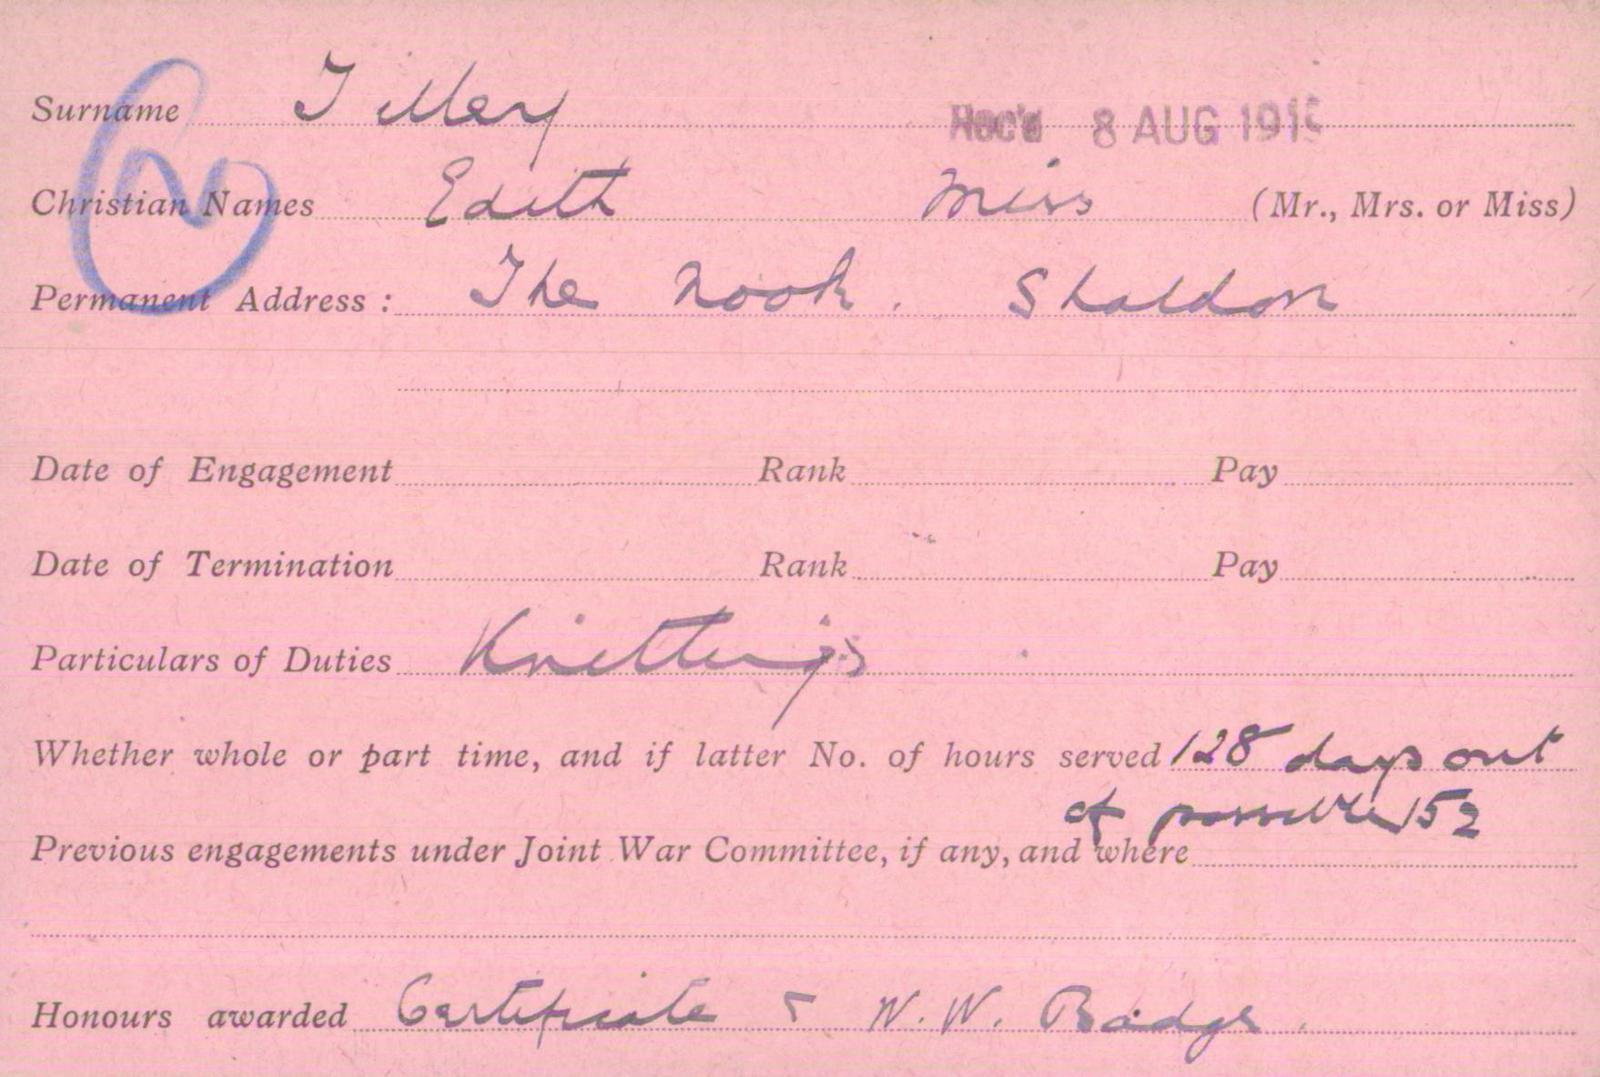 Surname Tilley Rec'd 8 AUG 191
Christian Names Edith Miss (Mr., Mrs. or Miss)
Permanent Address : The Nook. Shaldon
Date of Engagement Rank Pay
Date of Termination Rank Pay
Particulars of Duties Knittings
Whether whole or part time, and if latter No. of hours served 128 days out
of possible 152
Previous engagements under Joint War Committee, if any, and where
Honours awarded Certificate & W. W. Badge.